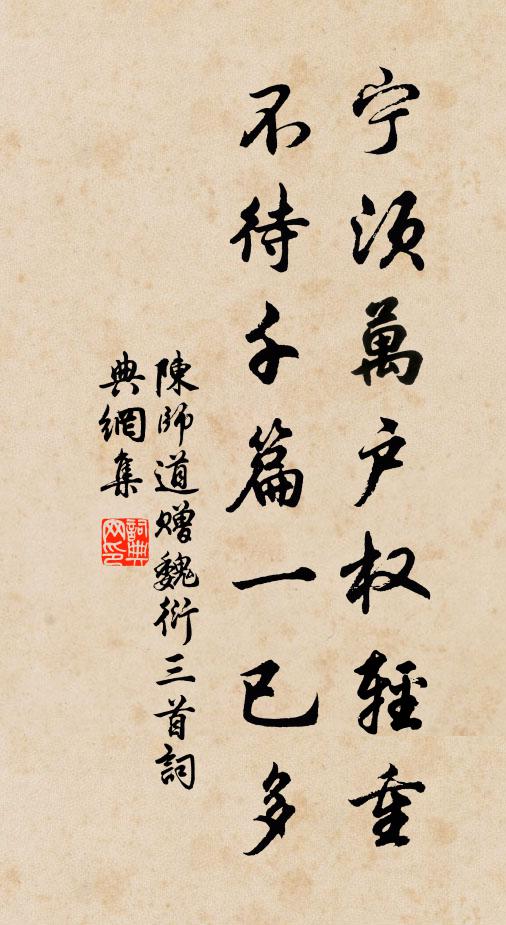 宁须萬户权輕重
不待千篇一已多
陳師道赠魏衍三首詞
典網集
詞典
网印